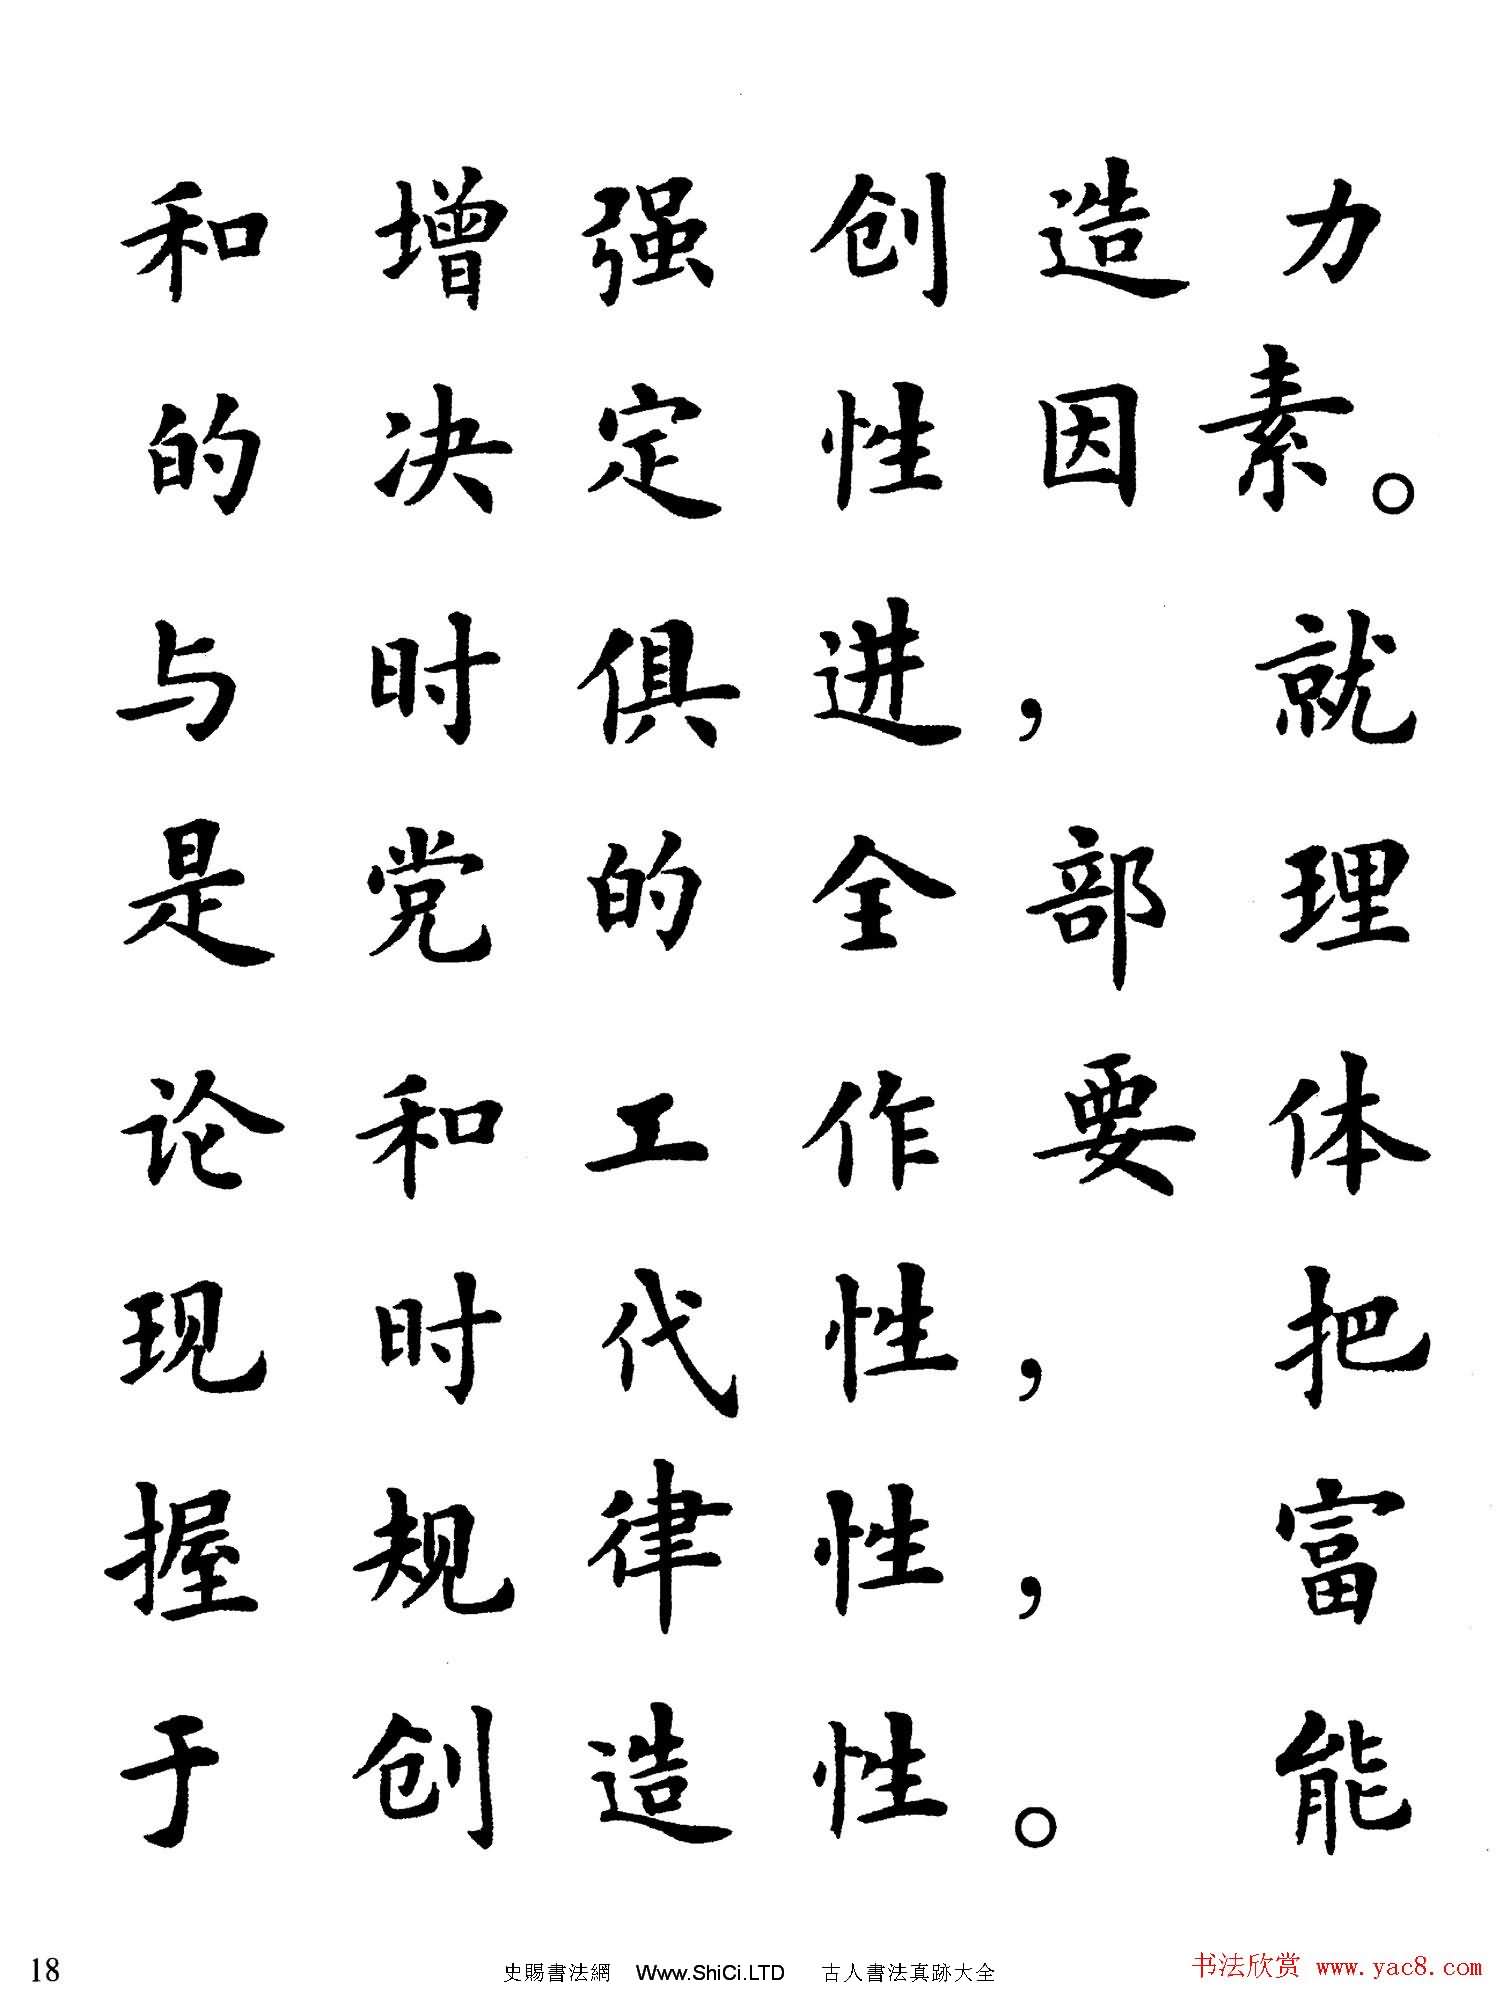 和增强创造力
的决定性因素。
与时俱进，就
是党的全部理
论和工作要体
现时代性，把
握规律性，富
于创造性。能
18
史賜書法網 Www.ShiCi.LTD 古人書法真跡大全
书法欣赏 www.yac8.com